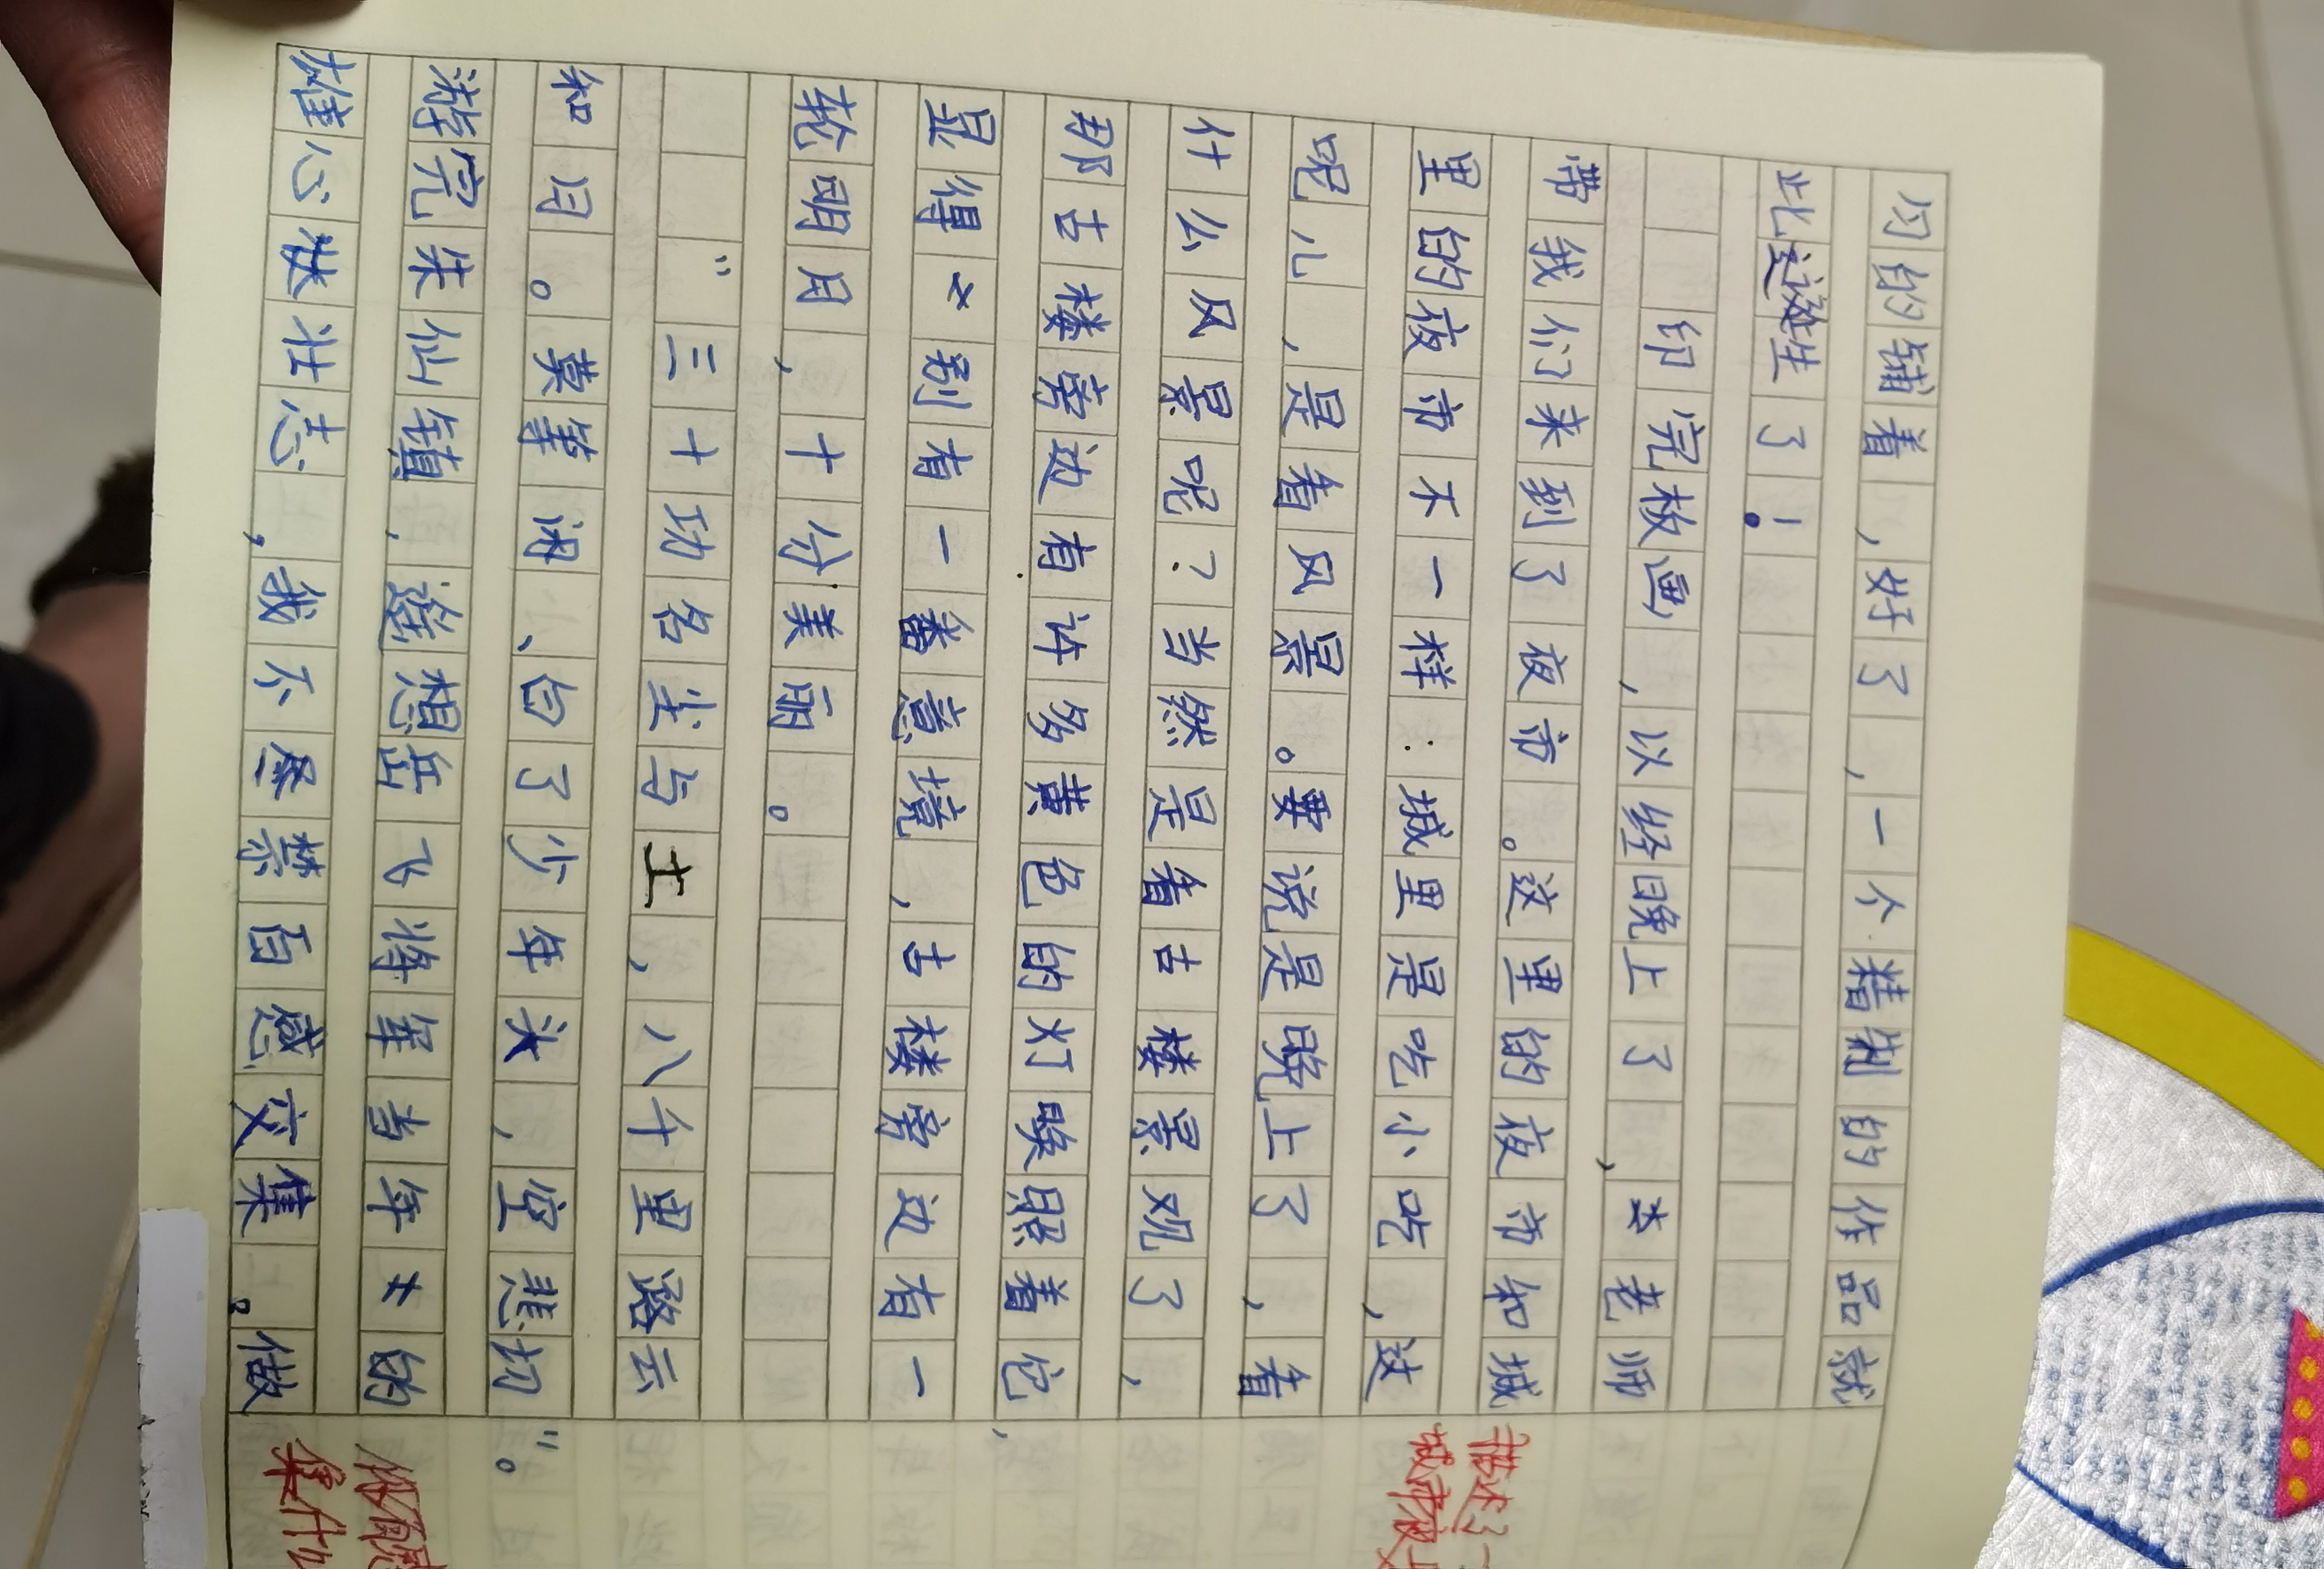 匀的铺着，好了，一个精制的作品就
此这诞生了！
印完板画，以经晚上了，李老师
带我们来到了夜市。这里的夜市和城
里的夜市不一样：城里是吃小吃，这
呢儿，是看风景。要说是晚上了，看
什么风景呢？当然是看古楼景观了，
那古楼旁边有许多黄色的灯映照着它，
显得别有一番意境，古楼旁边有一
轮明月，十分美丽。
“三十功名尘与土，八千里路云
和月。莫等闲、白了少年头，空悲切”。
游完朱仙镇，遥想岳飞将军当年的
雄心壮志，我不尽禁百感交集。做
描述了一
城市夜
集什么